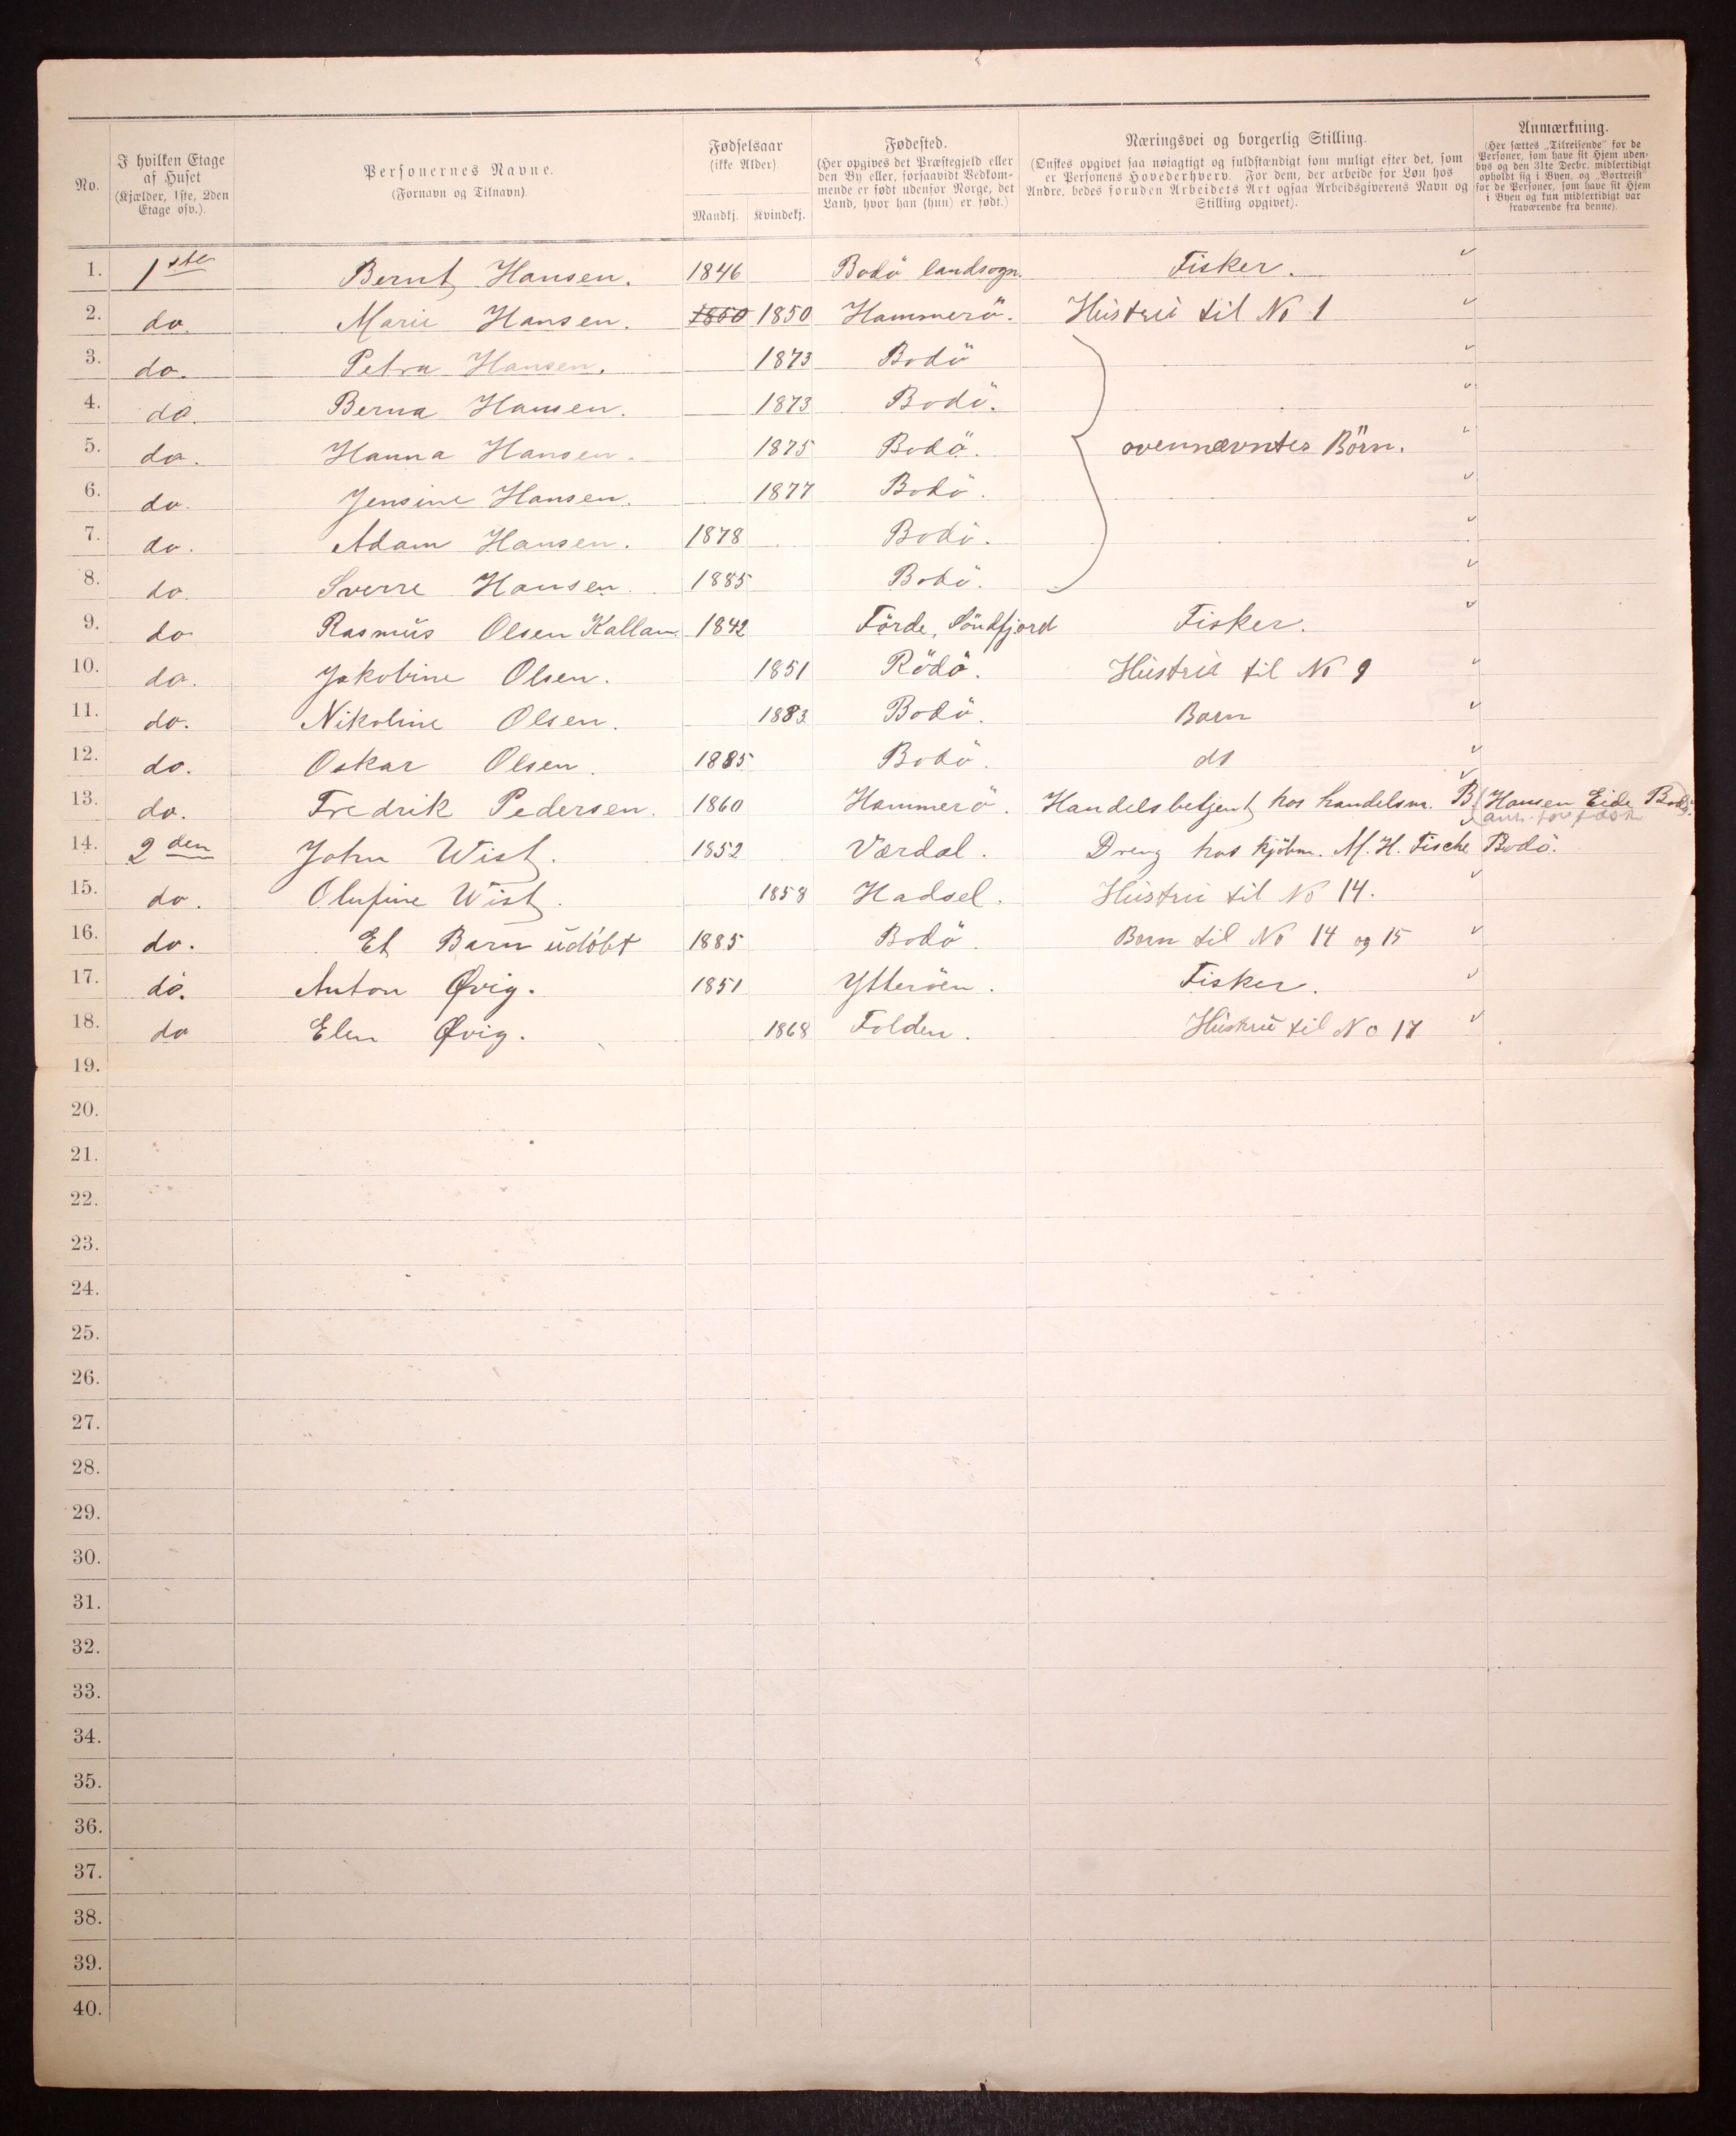 No.
I hvilken Etage af Huset (Kjælder, 1ste, 2den Etage osv.).
Personernes Navne. (Fornavn og Tilnavn).
Fødselsaar (ikke Alder)
Mandkj. Kvindekj.
Fødested.
(Her opgives det Præstegjeld eller den By eller, forsaavidt Vedkommende er født udenfor Norge, det Land, hvor han (hun) er født.)
Næringsvei og borgerlig Stilling.
(Ønskes opgivet saa nøiagtigt og fuldstændigt som muligt efter det, som er Personens Hovederhverv. For dem, der arbeide for Løn hos Andre, bedes foruden Arbeidets Art ogsaa Arbeidsgiverens Navn og Stilling opgivet).
Anmærkning.
(Her sættes „Tilreisende“ for de Personer, som have sit Hjem udenbys og den 31te Decbr. midlertidigt opholdt sig i Byen, og „Bortreist“ for de Personer, som have sit Hjem i Byen og kun midlertidigt var fraværende fra denne).
1. 1ste Bernt Hansen. 1846 Bodö landsogn. Fisker.
2. do. Marie Hansen. 1850 1850 Hammerö. Hüstrü til No 1
3. do. Petra Hansen. 1873 Bodö
4. do. Berna Hansen. 1873 Bodö.
5. do. Hanna Hansen. 1875 Bodö. ovennævntes Börn.
6. do. Jensine Hansen. 1877 Bodö.
7. do. Adam Hansen. 1878 Bodö.
8. do. Sverre Hansen. 1885 Bodö.
9. do Rasmüs Olsen Kallan. 1842 Förde, Söndfjord Fisker.
10. do. Jakobine Olsen. 1851 Rödö. Hüstrü til No 9
11. do. Nikoline Olsen. 1883 Bodö. Barn
12. do. Oskar Olsen. 1885 Bodö. do
13. do. Fredrik Pedersen. 1860 Hammerö. Handelsbetjent hos handelsm. B. Hansen Eide Bodö.
14. 2den John Wist. 1852 Værdal. Dreng hos kjöbm. M. H. Fische Bodö.
15. do. Olufine Wist. 1858 Hadsel. Hüstrü til No 14.
16. do. Et Barn üdöbt 1885 Bodö. Barn til No 14 og 15
17. do. Anton Øvig. 1851 Ytteröen. Fisker.
18. do Elen Øvig. 1868 Folden. Hüstrü til No 17
19.
20.
21.
22.
23.
24.
25.
26.
27.
28.
29.
30.
31.
32.
33.
34.
35.
36.
37.
38.
39.
40.